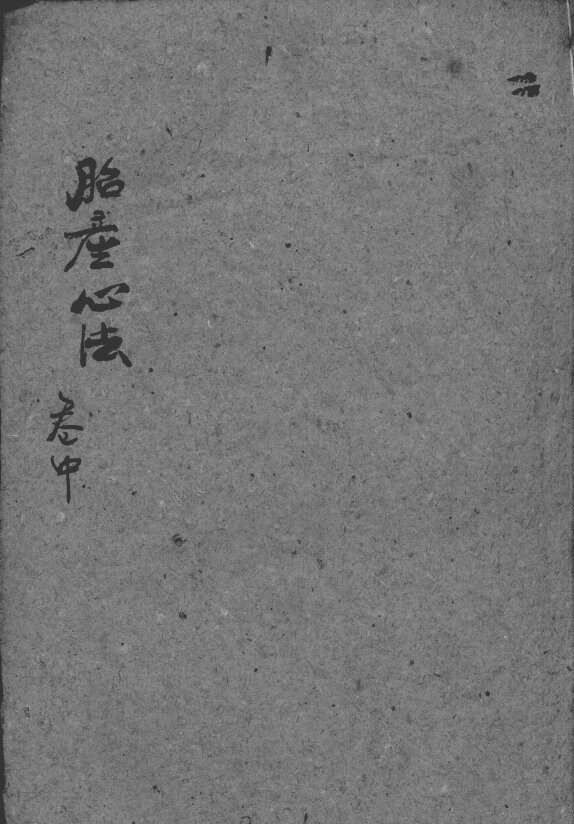 二
胎產心法
卷中